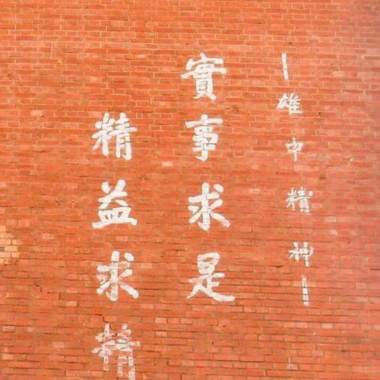 ｜雄中精神｜
實事求是
精益求精